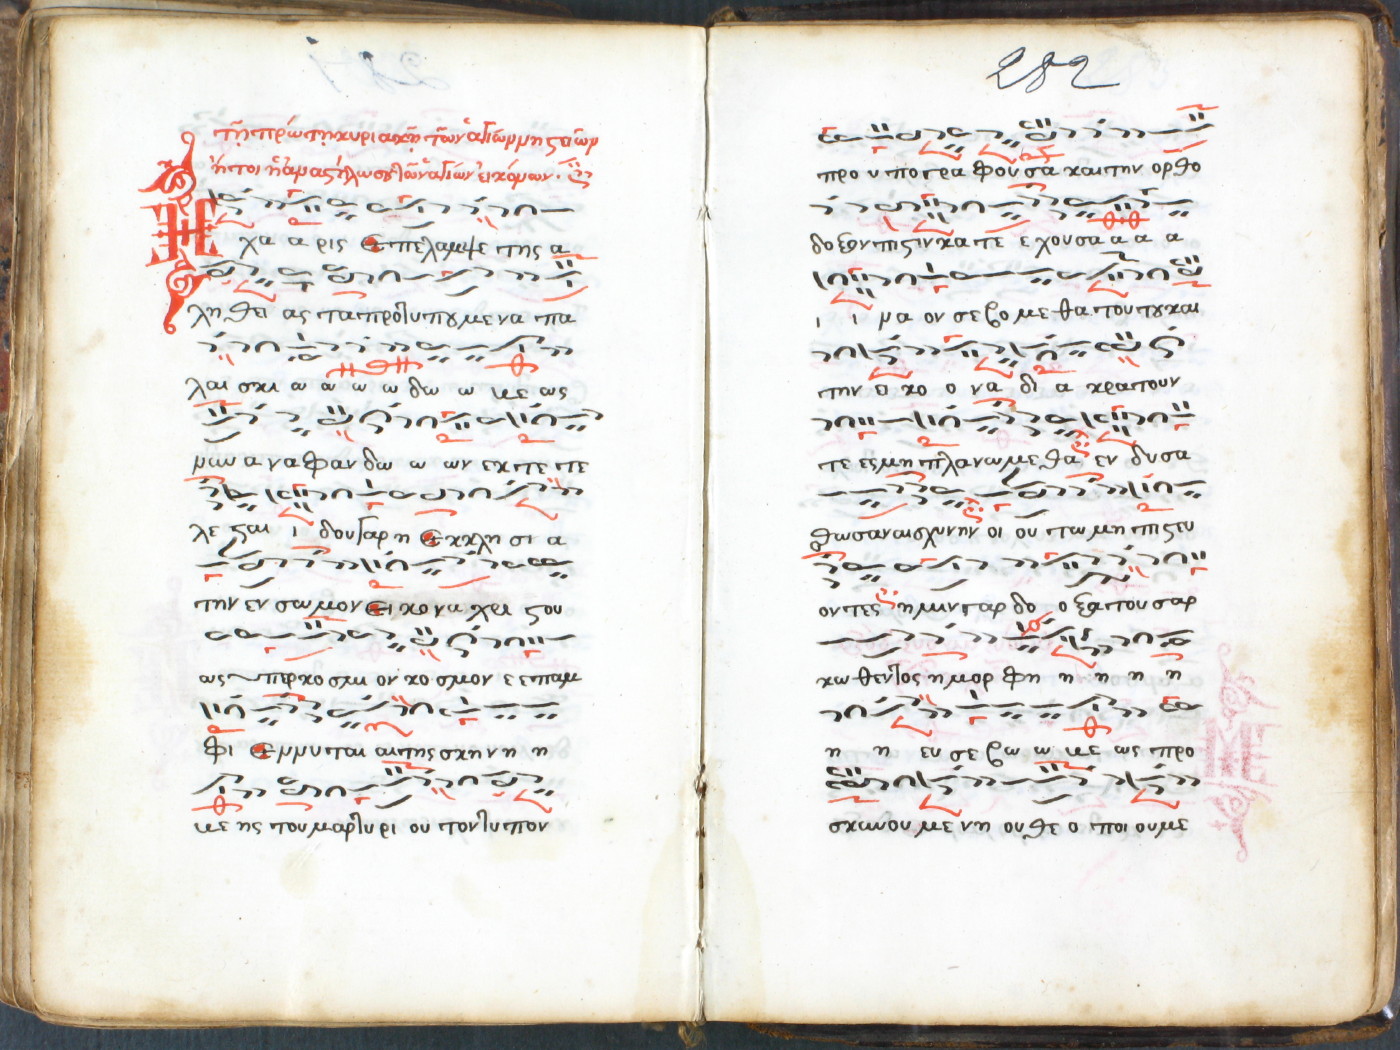 τῇ πρώτῃ κυριακῇ τῶν ἁγίων νηστειῶν
ἤτοι ἡ ἀναστήλωσις τῶν ἁγίων εἰκόνων.
Η χα α ρις επελαμψε της α
λη θει ας τα προτυπου με να πα
λαι σκι ω ω ω ω δω ω με ως
νων α να φαν δω ω ων εκ τε τε
λε σαι ι δου γαρ η Εκκλη σι α
την εν σω μον Ει κο να χρι στου
ως υπερ κο σμι ον κο σμον ε επαμ
φι εμμυται αι της σκη νη η
με ης του μαρτυρι ου τον τυπον
282
προ υ πο γρα φου σα και την ορθο
δοξον πιστιν κα τε ε χου σα α α α
ι ι να ον σε βο με θα του του και
την ει κο ο να δι α κρα τουν
τε ες μη πλανωμε θα εν δυ σα
θωσαν αισχυνην οι ου τω μη πιστευ
οντες η μιν γαρ δο ο ξα του σαρ
κω θεντος η μορ φη η η η η
η η ευ σε βω ω με ως προ
σκυνου με νη ου θε ο ποι ουμε